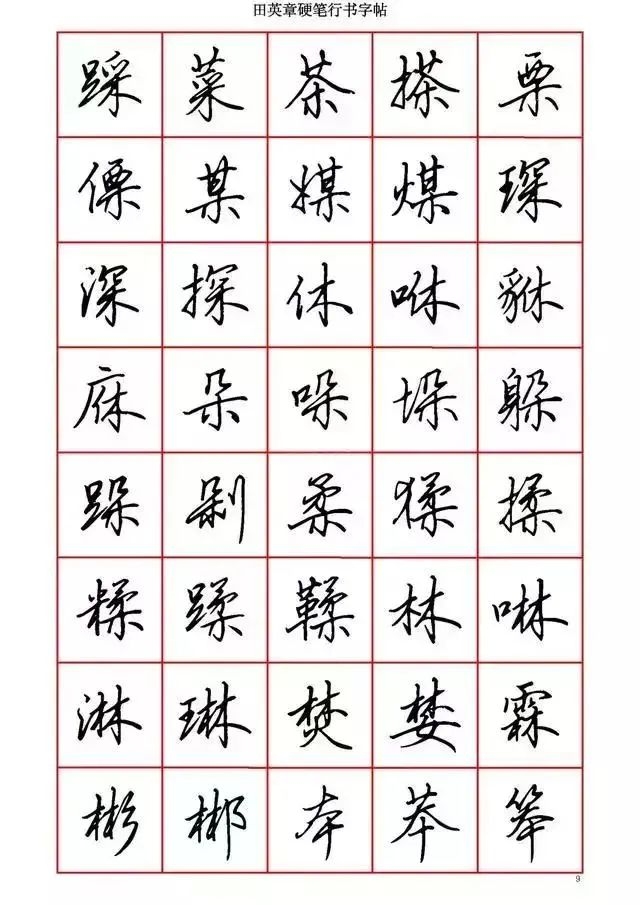 田英章硬笔行书字帖
踩 菜 茶 搽 栗
傈 某 媒 煤 琛
深 探 休 咻 貅
庥 朵 哚 垛 躲
跺 剁 柔 猱 揉
糅 蹂 鞣 林 啉
淋 琳 焚 婪 霖
彬 郴 本 苯 笨
9